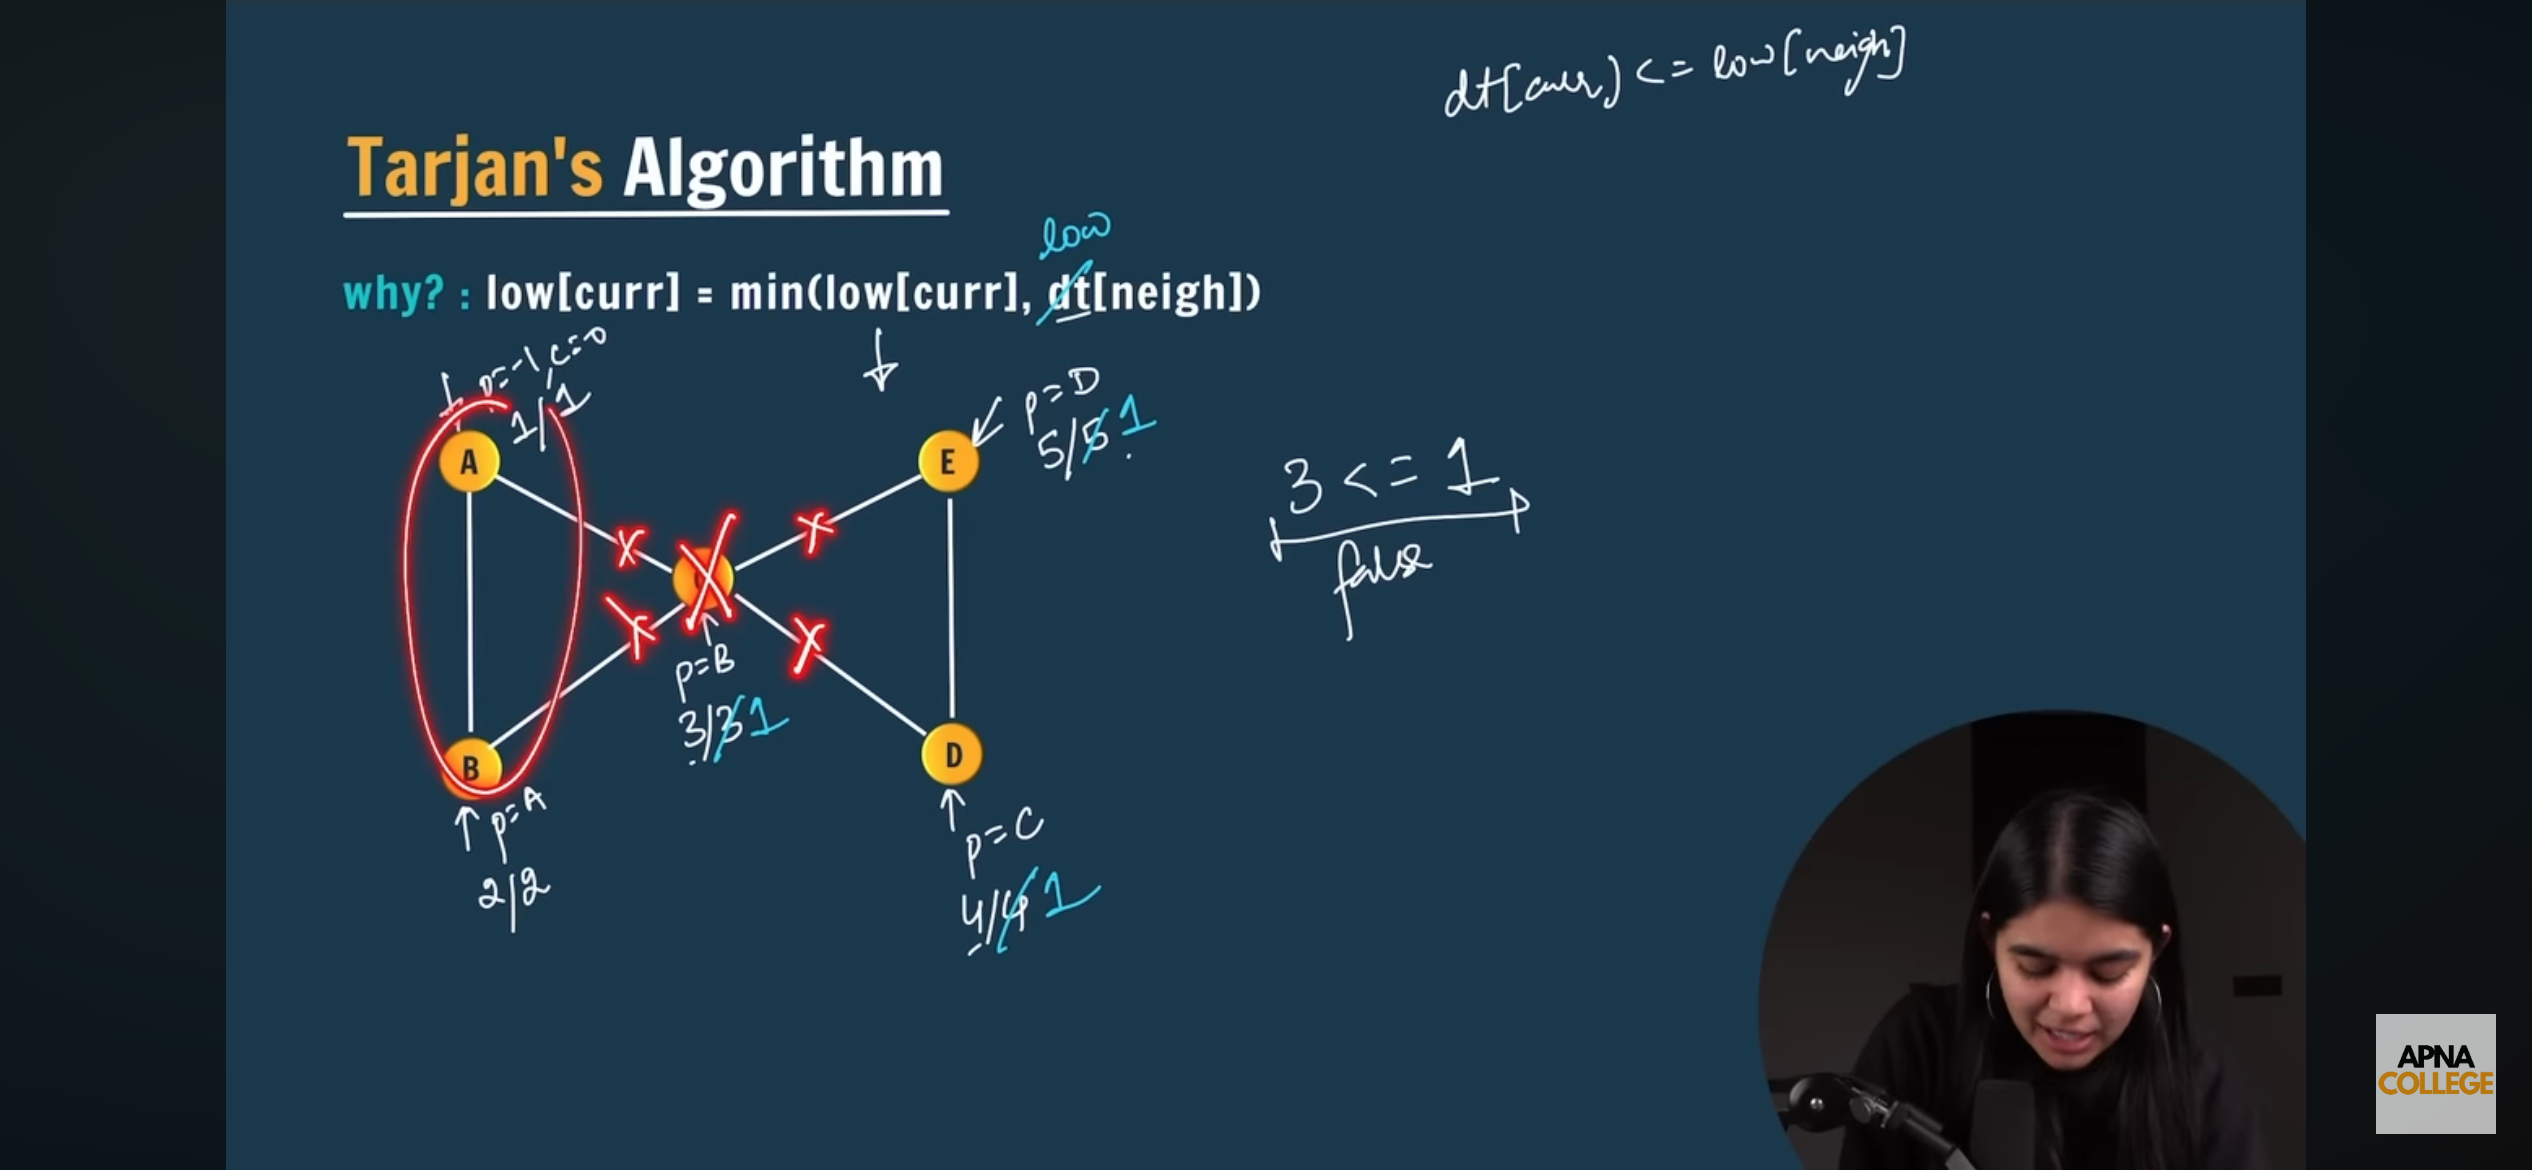 dt[curr] <= low[neigh]
Tarjan's Algorithm
low
why? : low[curr] = min(low[curr], dt[neigh])
p=-1, c=0
1/1
p=D
5/5 1
A
E
3 <= 1
false
p=B
3/3 1
B
D
p=A
2/2
p=C
4/4 1
APNA
COLLEGE